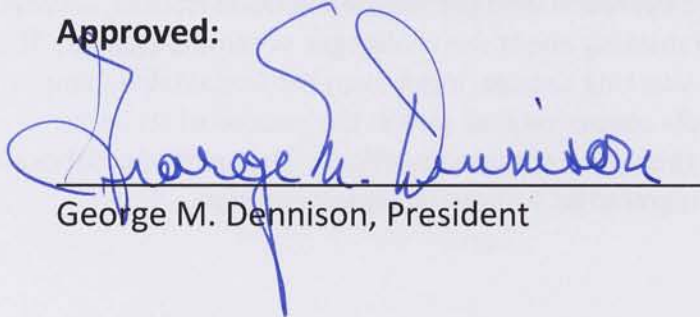 Approved:
George M. Dennison
George M. Dennison, President